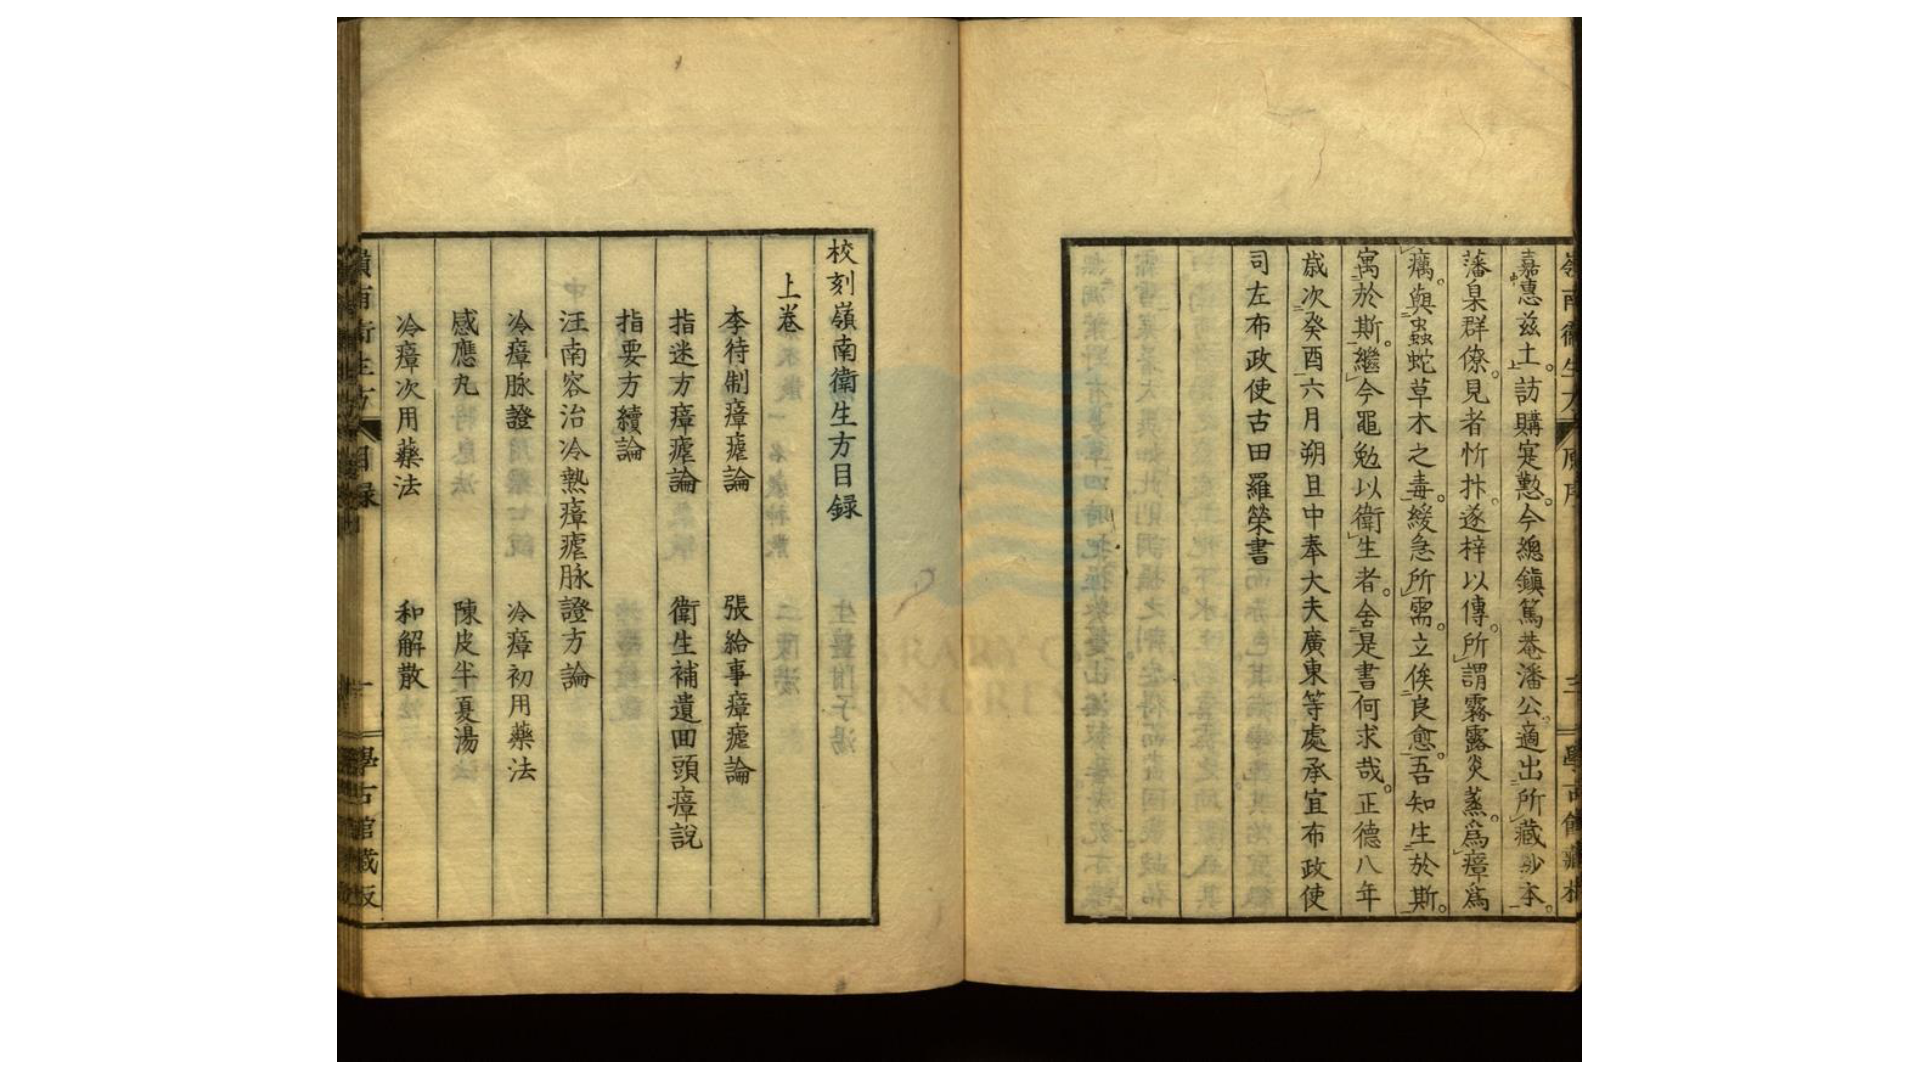 嘉惠茲土。訪購寔懃。今總鎭篤菴潘公適出所藏鈔本。
藩臬群僚。見者忻抃。遂梓以傳。所謂霧露炎蒸。爲瘴爲
癘。與蟲蛇草木之毒。緩急所需。立俟良愈。吾知生於斯。
寓於斯。繼今黽勉以衛生者。舍是書何求哉。正德八年
歲次癸酉六月朔旦中奉大夫廣東等處承宣布政使
司左布政使古田羅榮書
校刻嶺南衛生方目錄
上卷
李待制瘴瘧論 張給事瘴瘧論
指迷方瘴瘧論 衛生補遺回頭瘴說
指要方續論
汪南容治冷熱瘴瘧脉證方論
冷瘴脉證 冷瘴初用藥法
感應丸 陳皮半夏湯
冷瘴次用藥法 和解散
嶺南衛生方 目錄 一 學古館藏板